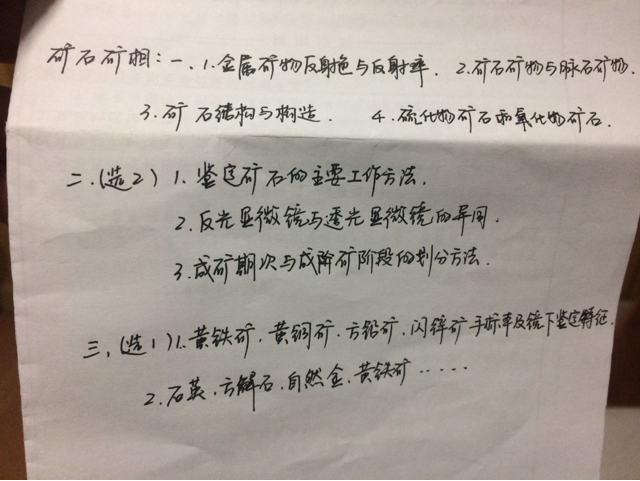 矿石矿相:一、1.金属矿物反射色与反射率. 2.矿石矿物与脉石矿物.
3.矿石结构与构造. 4.硫化物矿石和氧化物矿石.
二.(选2) 1.鉴定矿石的主要工作方法.
2.反光显微镜与透光显微镜的异同.
3.成矿期次与成矿阶段的划分方法.
三.(选1)1.黄铁矿、黄铜矿、方铅矿、闪锌矿手标本及镜下鉴定特征.
2.石英、方解石、自然金、黄铁矿……